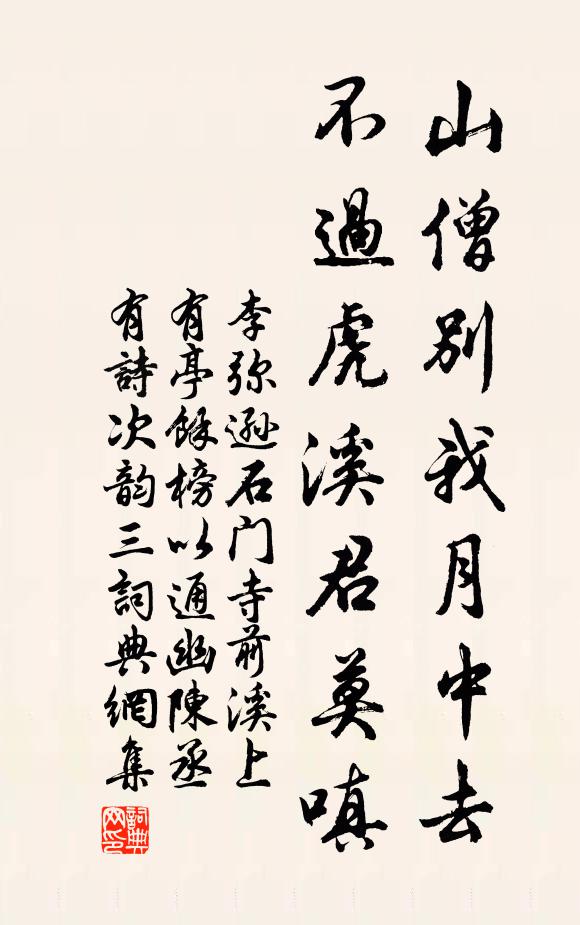 山僧別我月中去
不過虎溪君莫嗔
李弥遜石门寺前溪上
有亭餘榜以通幽陳丞
有詩次韵三詞典網集
詞典
网印